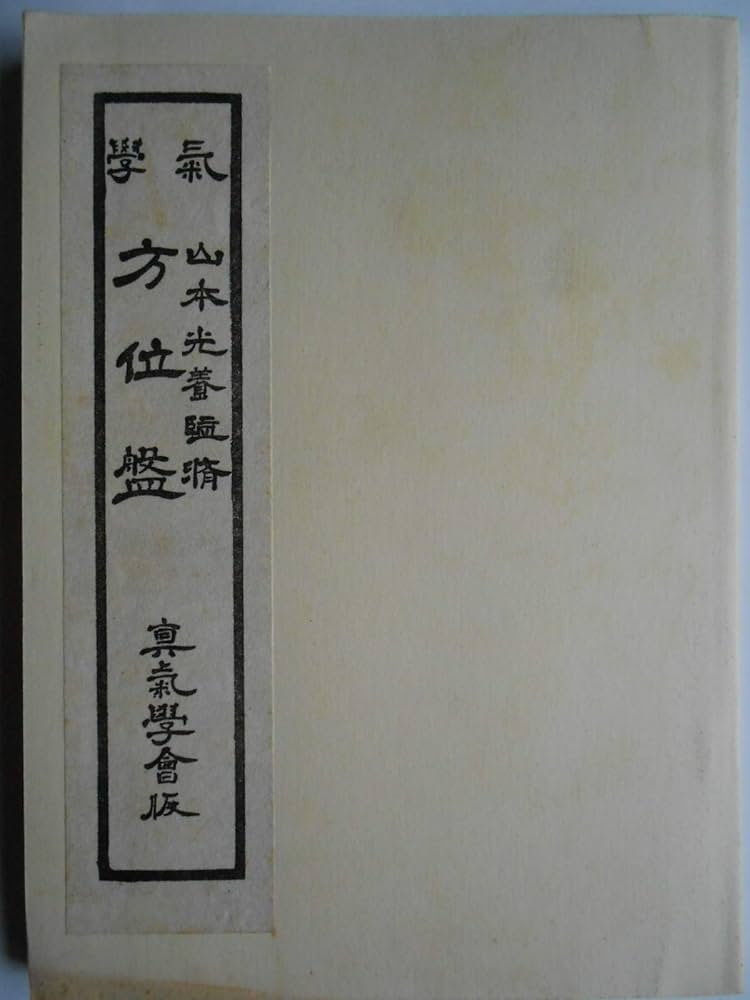 氣學
山本光養監脩
方位盤
眞氣學會版